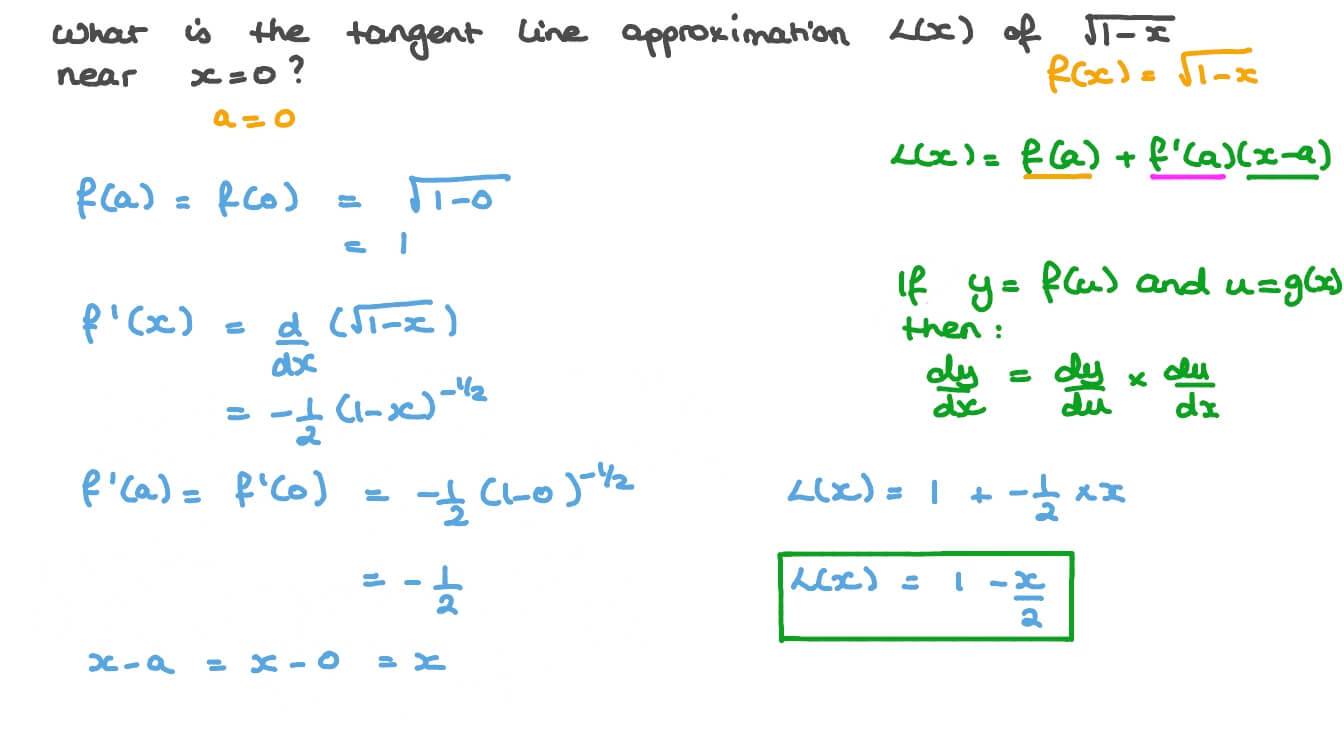 What is the tangent line approximation L(x) of √(1-x)
near x=0?
f(x) = √(1-x)
a=0
L(x) = f(a) + f'(a)(x-a)
f(a) = f(0) = √(1-0)
= 1
If y = f(u) and u=g(x)
then:
dy/dx = dy/du × du/dx
f'(x) = d/dx (√(1-x))
= -1/2 (1-x)^(-1/2)
f'(a) = f'(0) = -1/2 (1-0)^(-1/2)
= -1/2
x-a = x-0 = x
L(x) = 1 + -1/2 × x
L(x) = 1 - x/2